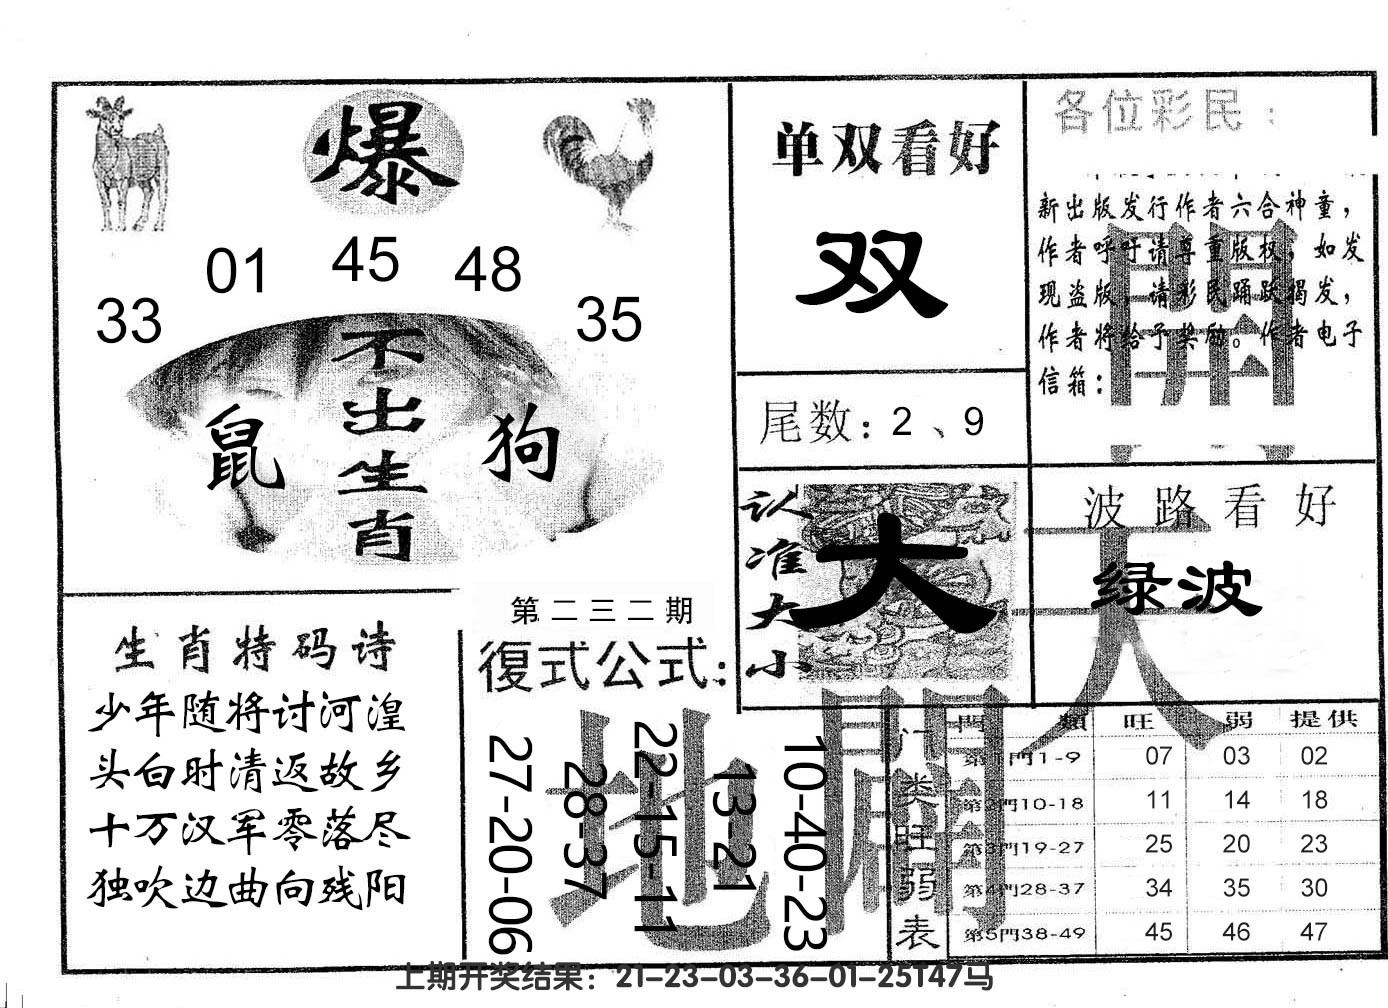 爆
01 45 48
33 35
不出生肖
鼠
狗
单双看好
双
尾数：2、9
认准大小
大
各位彩民：
新出版发行作者六合神童，
作者呼吁请尊重版权，如发
现盗版，请彩民踊跃揭发，
作者将给予奖励。作者电子
信箱：
開
波路看好
绿波
天
生肖特码诗
少年随将讨河湟
头白时清返故乡
十万汉军零落尽
独吹边曲向残阳
第二三二期
復式公式：
27-20-06
28-37
22-15-11
13-21
10-40-23
地
门类旺弱表
門類 旺 弱 提供
第1門1-9 07 03 02
第2門10-18 11 14 18
第3門19-27 25 20 23
第4門28-37 34 35 30
第5門38-49 45 46 47
上期开奖结果：21-23-03-36-01-25T47马